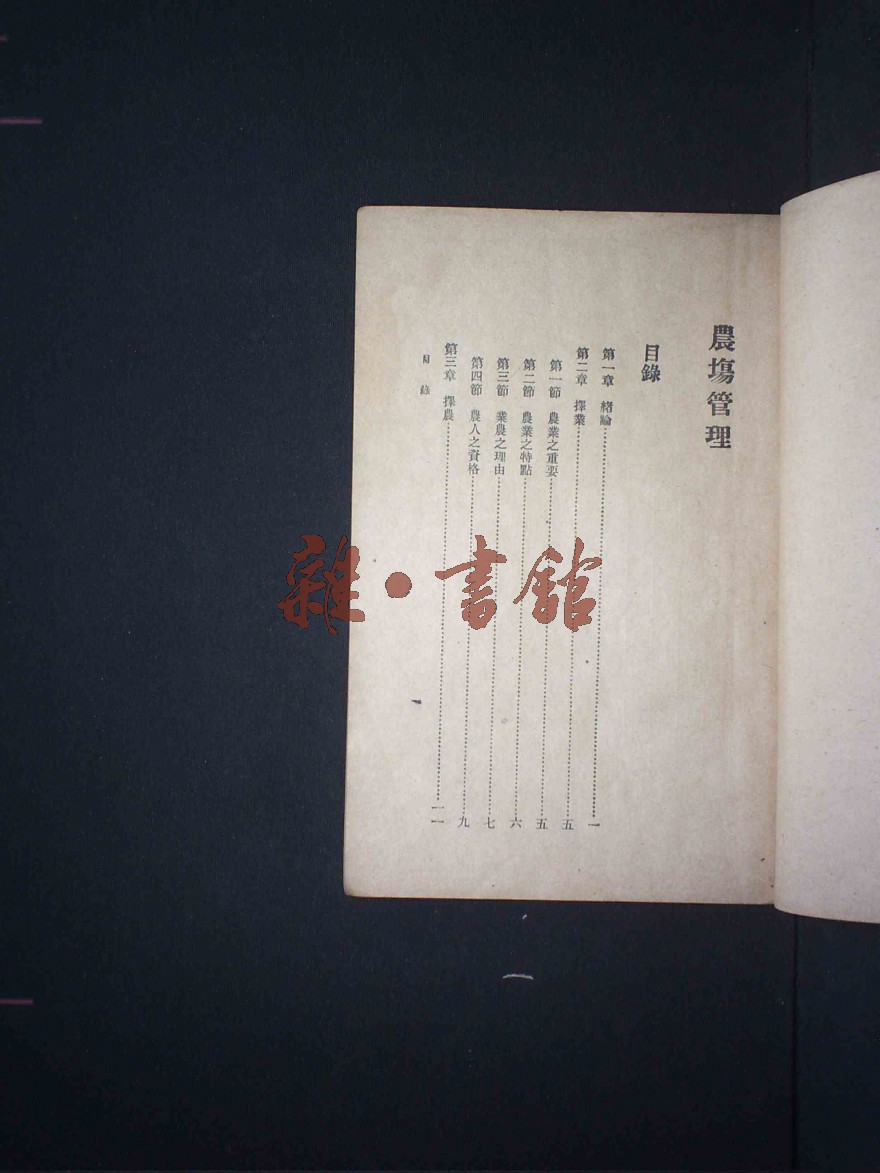 農塲管理
目錄
第一章 緒論……一
第二章 擇業……五
第一節 農業之重要……五
第二節 農業之特點……六
第三節 業農之理由……七
第四節 農人之資格……九
第三章 擇農……一一
目錄
雜·書館